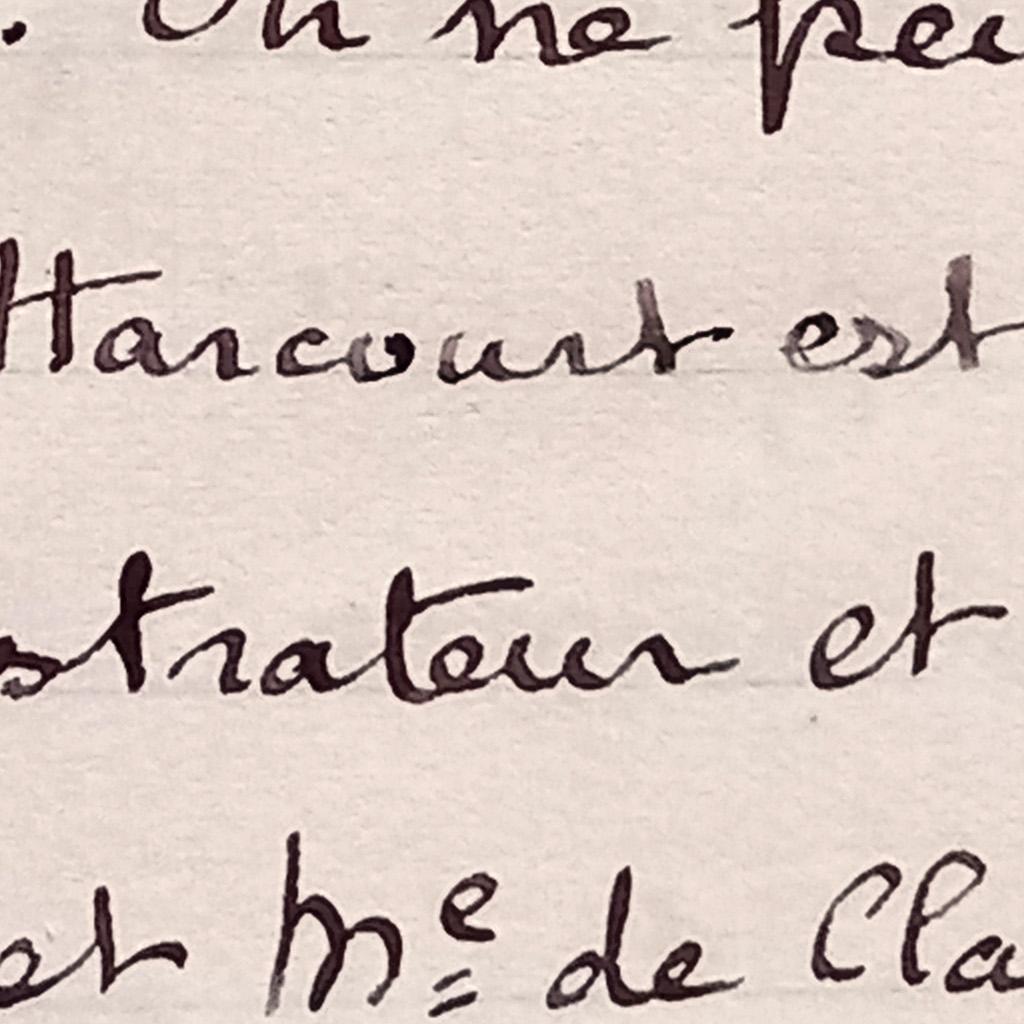 . On ne peu
Harcourt est
strateur et
et Mᵉ de Cla